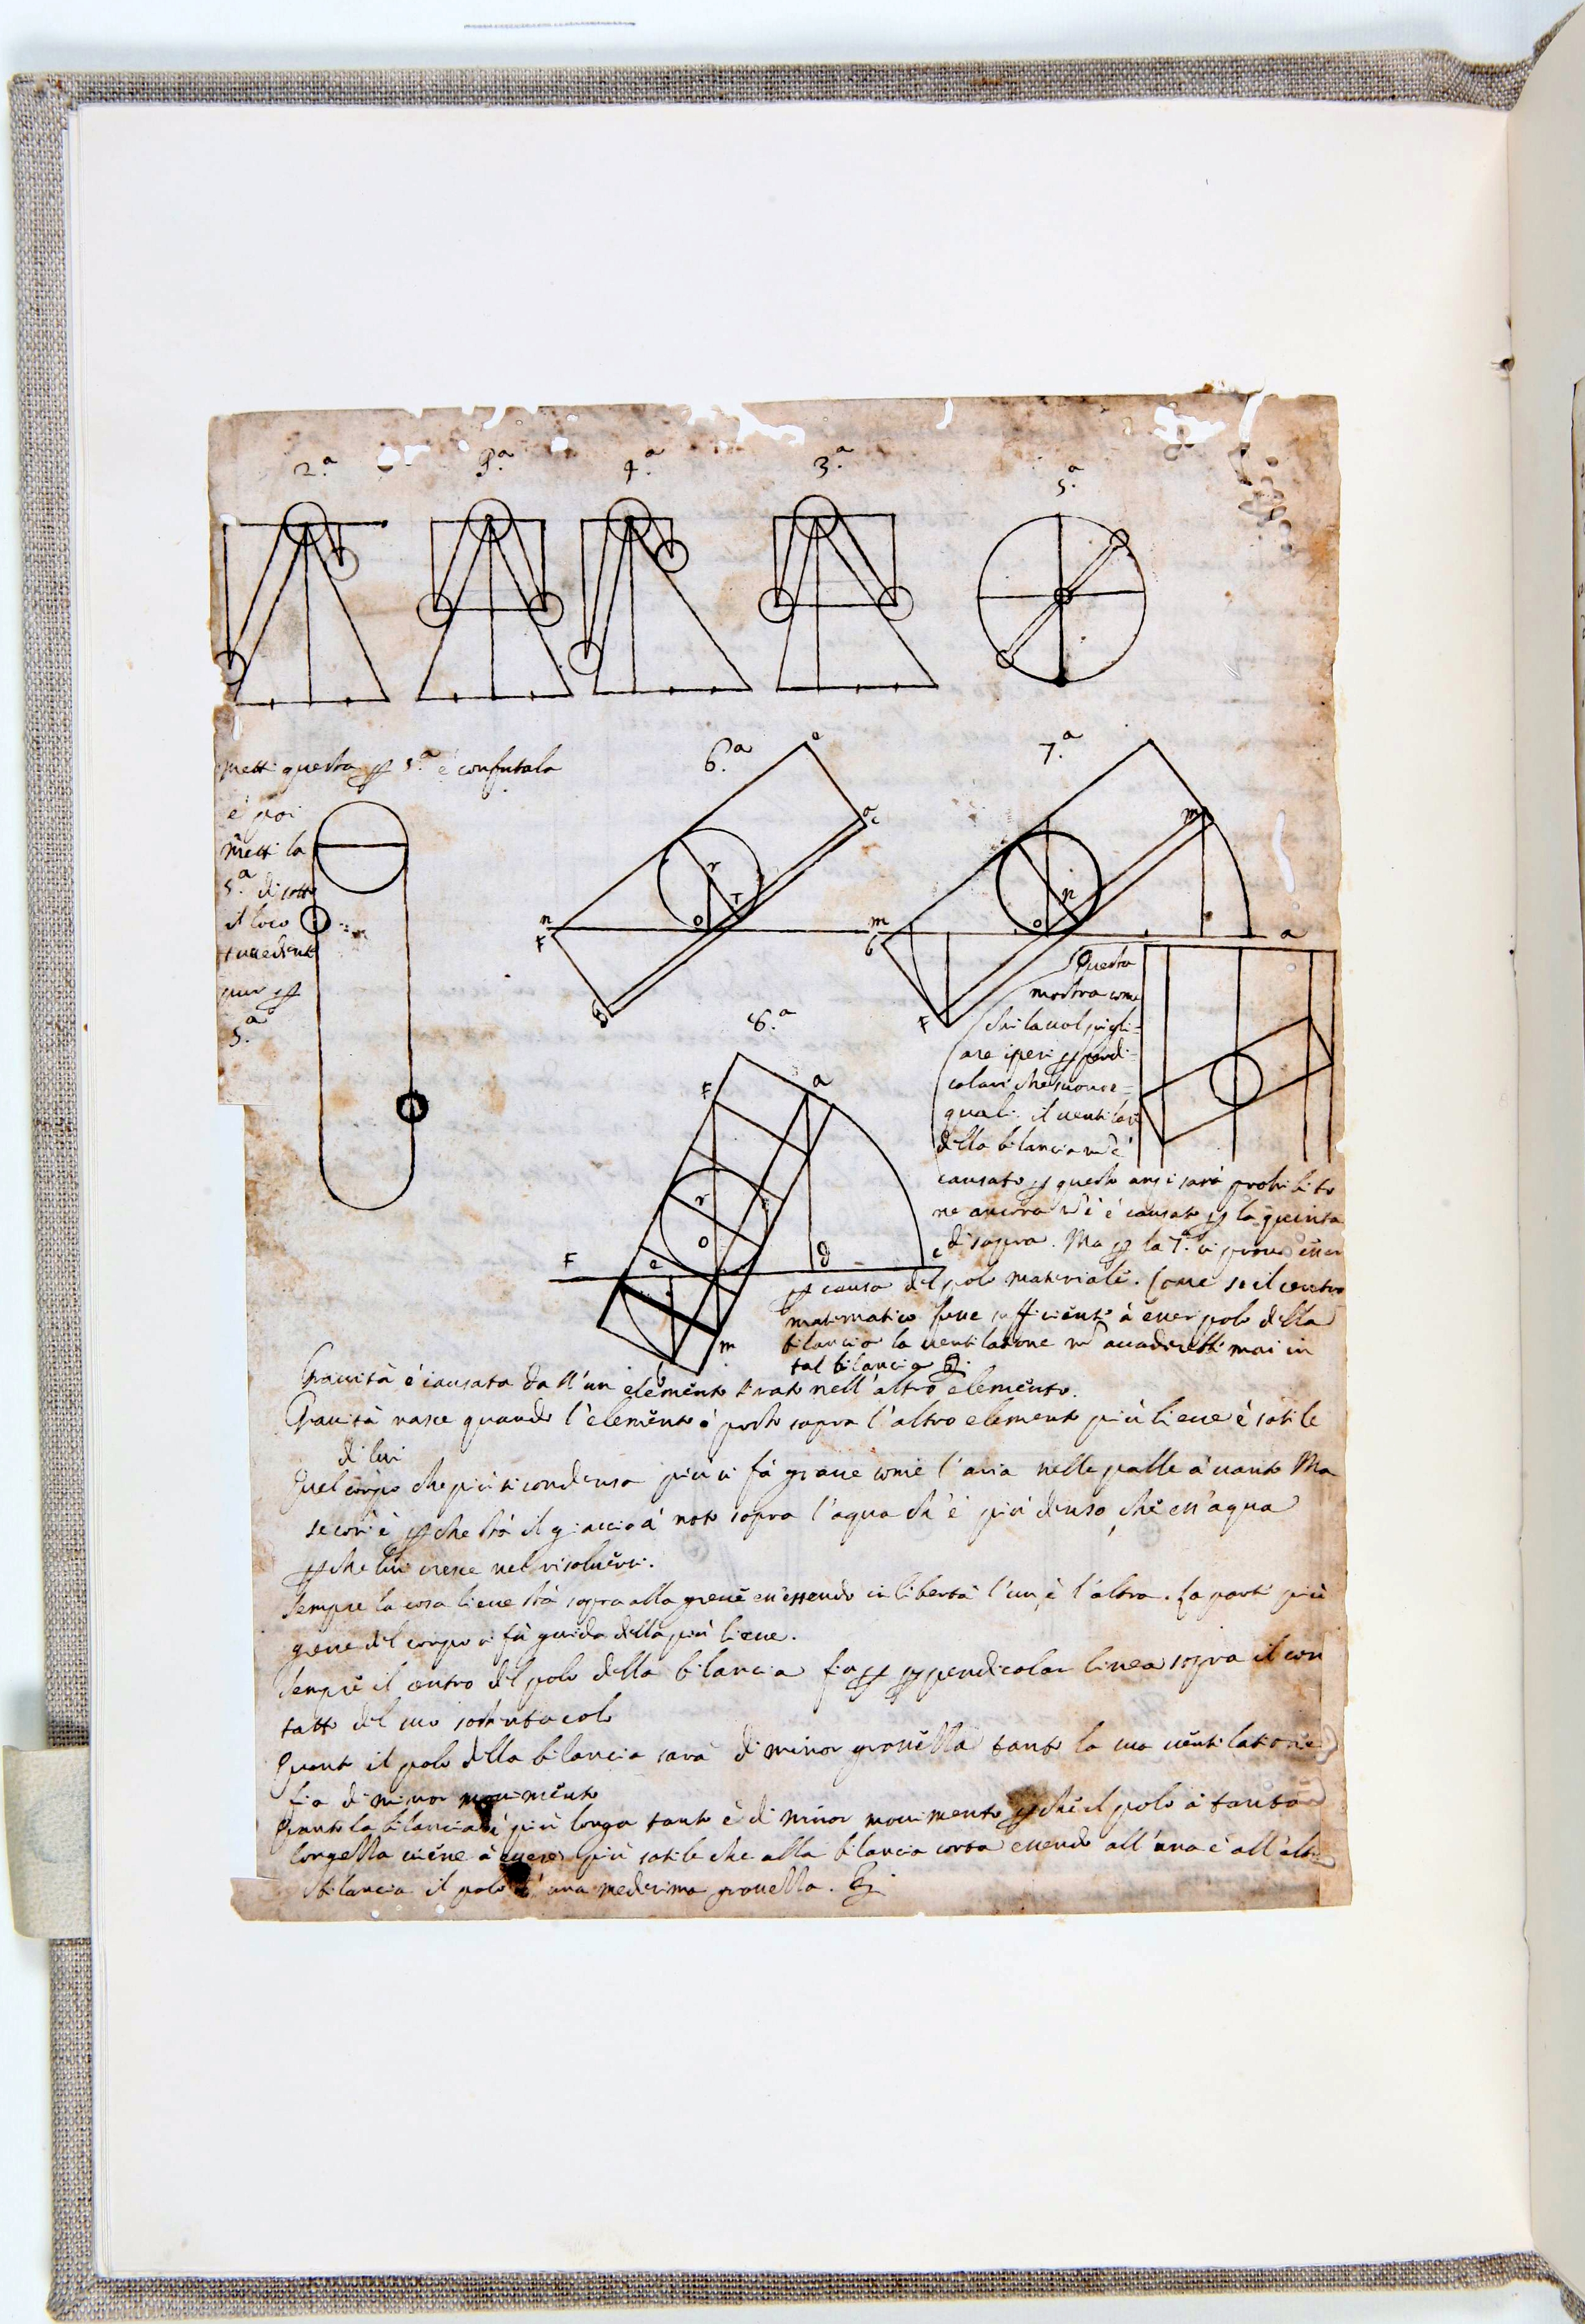 2.ª 3.ª 4.ª 3.ª 5.ª
Metti questa ꝑ 5.ª è confutala
è poi
metti la
5.ª di sotto
il loco
pur ꝑ
5.ª
6.ª
n
F
r
o
m
7.ª
m
n
o
F
a
8.ª
F
a
r
o
e
F
d
c
m
Questa
mostra come
chi la vol pigli-
are i pesi ꝑpendi-
colari che siono e-
quali. il ventilare
della bilancia nõ è
causato ꝑ questo anzi sarà prohibito
ne ancora nõ è causato ꝑ la quinta
di sopra. Ma ꝑ la 7.ª si prova esser
ꝑ causa del polo materiale. Come se il centro
matematico fusse sufficiente à esser polo della
bilancia la ventilatione nõ accaderebbe mai in
tal bilancia
Gravità è causata dall'un elemento tirato nell'altro elemento.
Gravità nasce quando l'elemento è posto sopra l'altro elemento più lieve è sotile
di lui
Quel corpo che più si condensa più si fà grave come l'aria nelle palle à vento Ma
se così è ꝑche stà il giaccio à noto sopra l'aqua ch'è più denso che essa aqua
ꝑche lui cresce nel risolversi.
Sempre la cosa lieve stà sopra alla greve essendo in libertà l'un è l'altra. La parte più
greve del corpo si fà guida della più lieve.
Sempre il centro del polo della bilancia fia ꝑ ꝑpendicolar linea sopra il con
tatto del suo sostentacolo
Quanto il polo della bilancia sarà di minor grossezza tanto la sua ventilatione
fia di minor movimento
Quanto la bilancia è più longa tanto è di minor movimento ꝑchè il polo à tanta
longezza viene à essere più sotile che alla bilancia corta essendo all'una è all'altra
bilancia il polo d'una medesima grossezza.